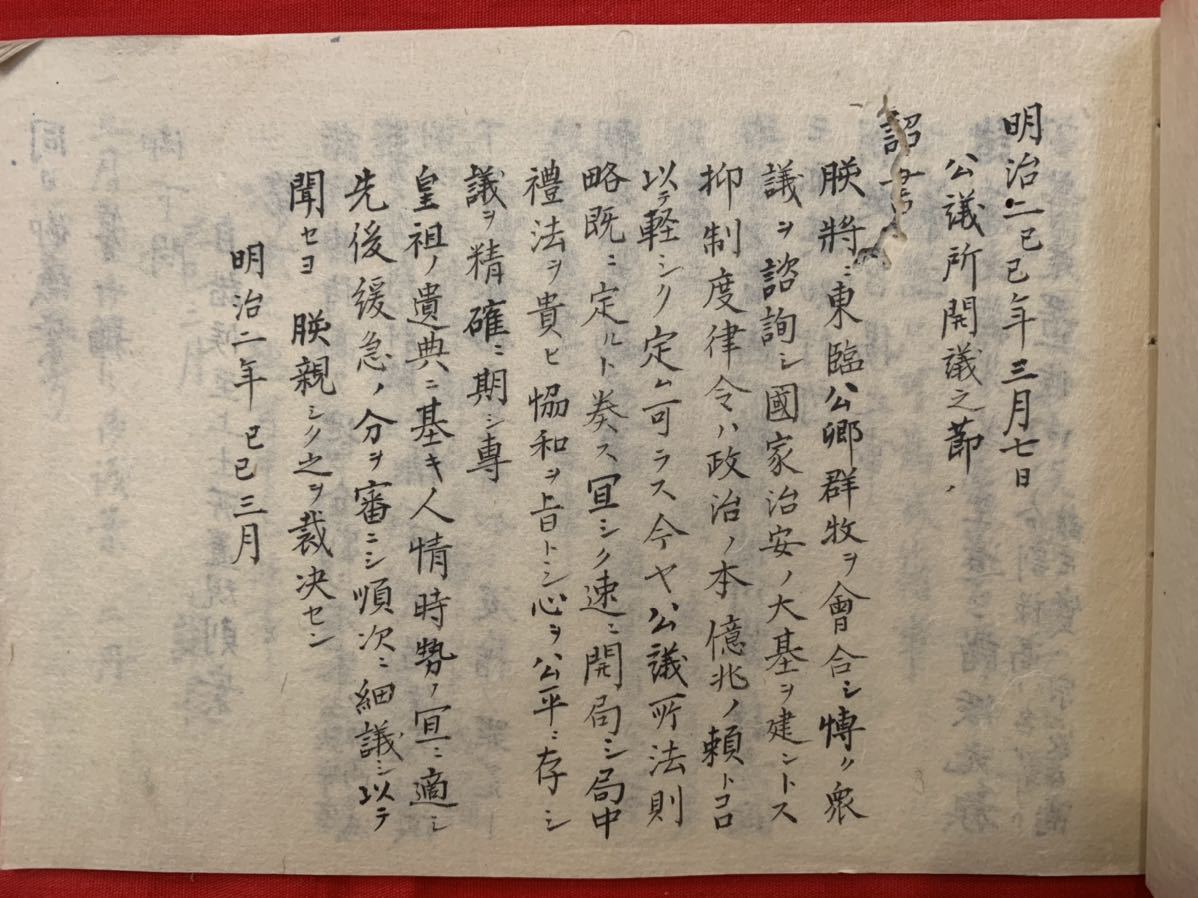 明治二己巳年三月七日
公議所開議之節、
詔書
朕將ニ東臨公卿群牧ヲ會合シ博ク衆
議ヲ諮詢シ國家治安ノ大基ヲ建ントス
抑制度律令ハ政治ノ本億兆ノ頼トコロ
以テ軽シク定ム可ラス今ヤ公議所法則
略既ニ定ルト奏ス宜シク速ニ開局シ局中
禮法ヲ貴ヒ協和ヲ旨トシ心ヲ公平ニ存シ
議ヲ精確ニ期シ專
皇祖ノ遺典ニ基キ人情時勢ノ宜ニ適シ
先後緩急ノ分ヲ審ニシ順次ニ細議シ以テ
聞セヨ 朕親シク之ヲ裁决セン
明治二年 己巳三月